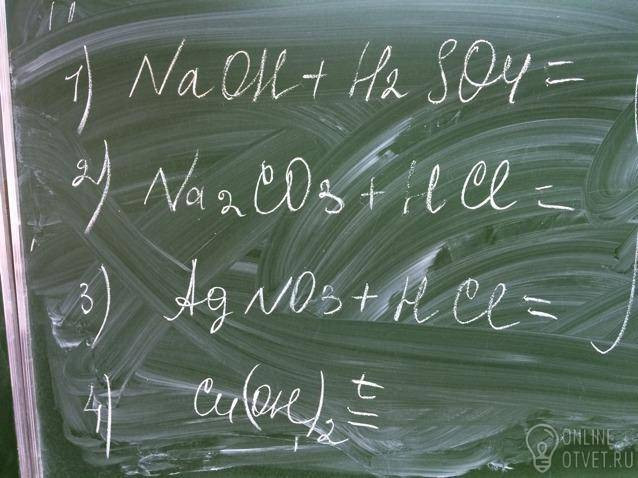 1) NaOH + H2SO4 =
2) Na2CO3 + HCl =
3) AgNO3 + HCl =
4) Cu(OH)2 t=
ONLINE
OTVET.RU